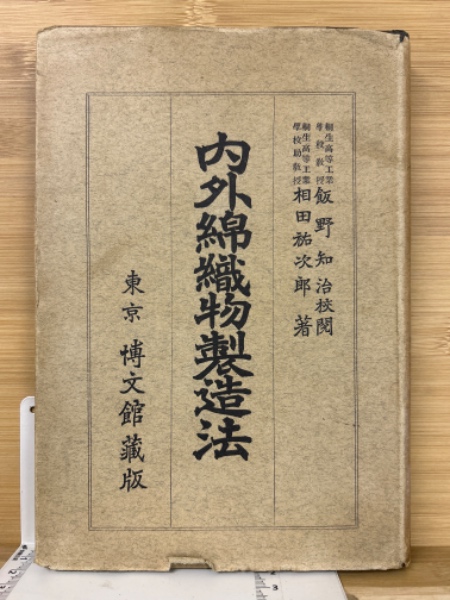 桐生高等工業學校教授 飯野知治校閲
桐生高等工業學校助教授 相田祐次郎著
内外綿織物製造法
東京 博文館藏版